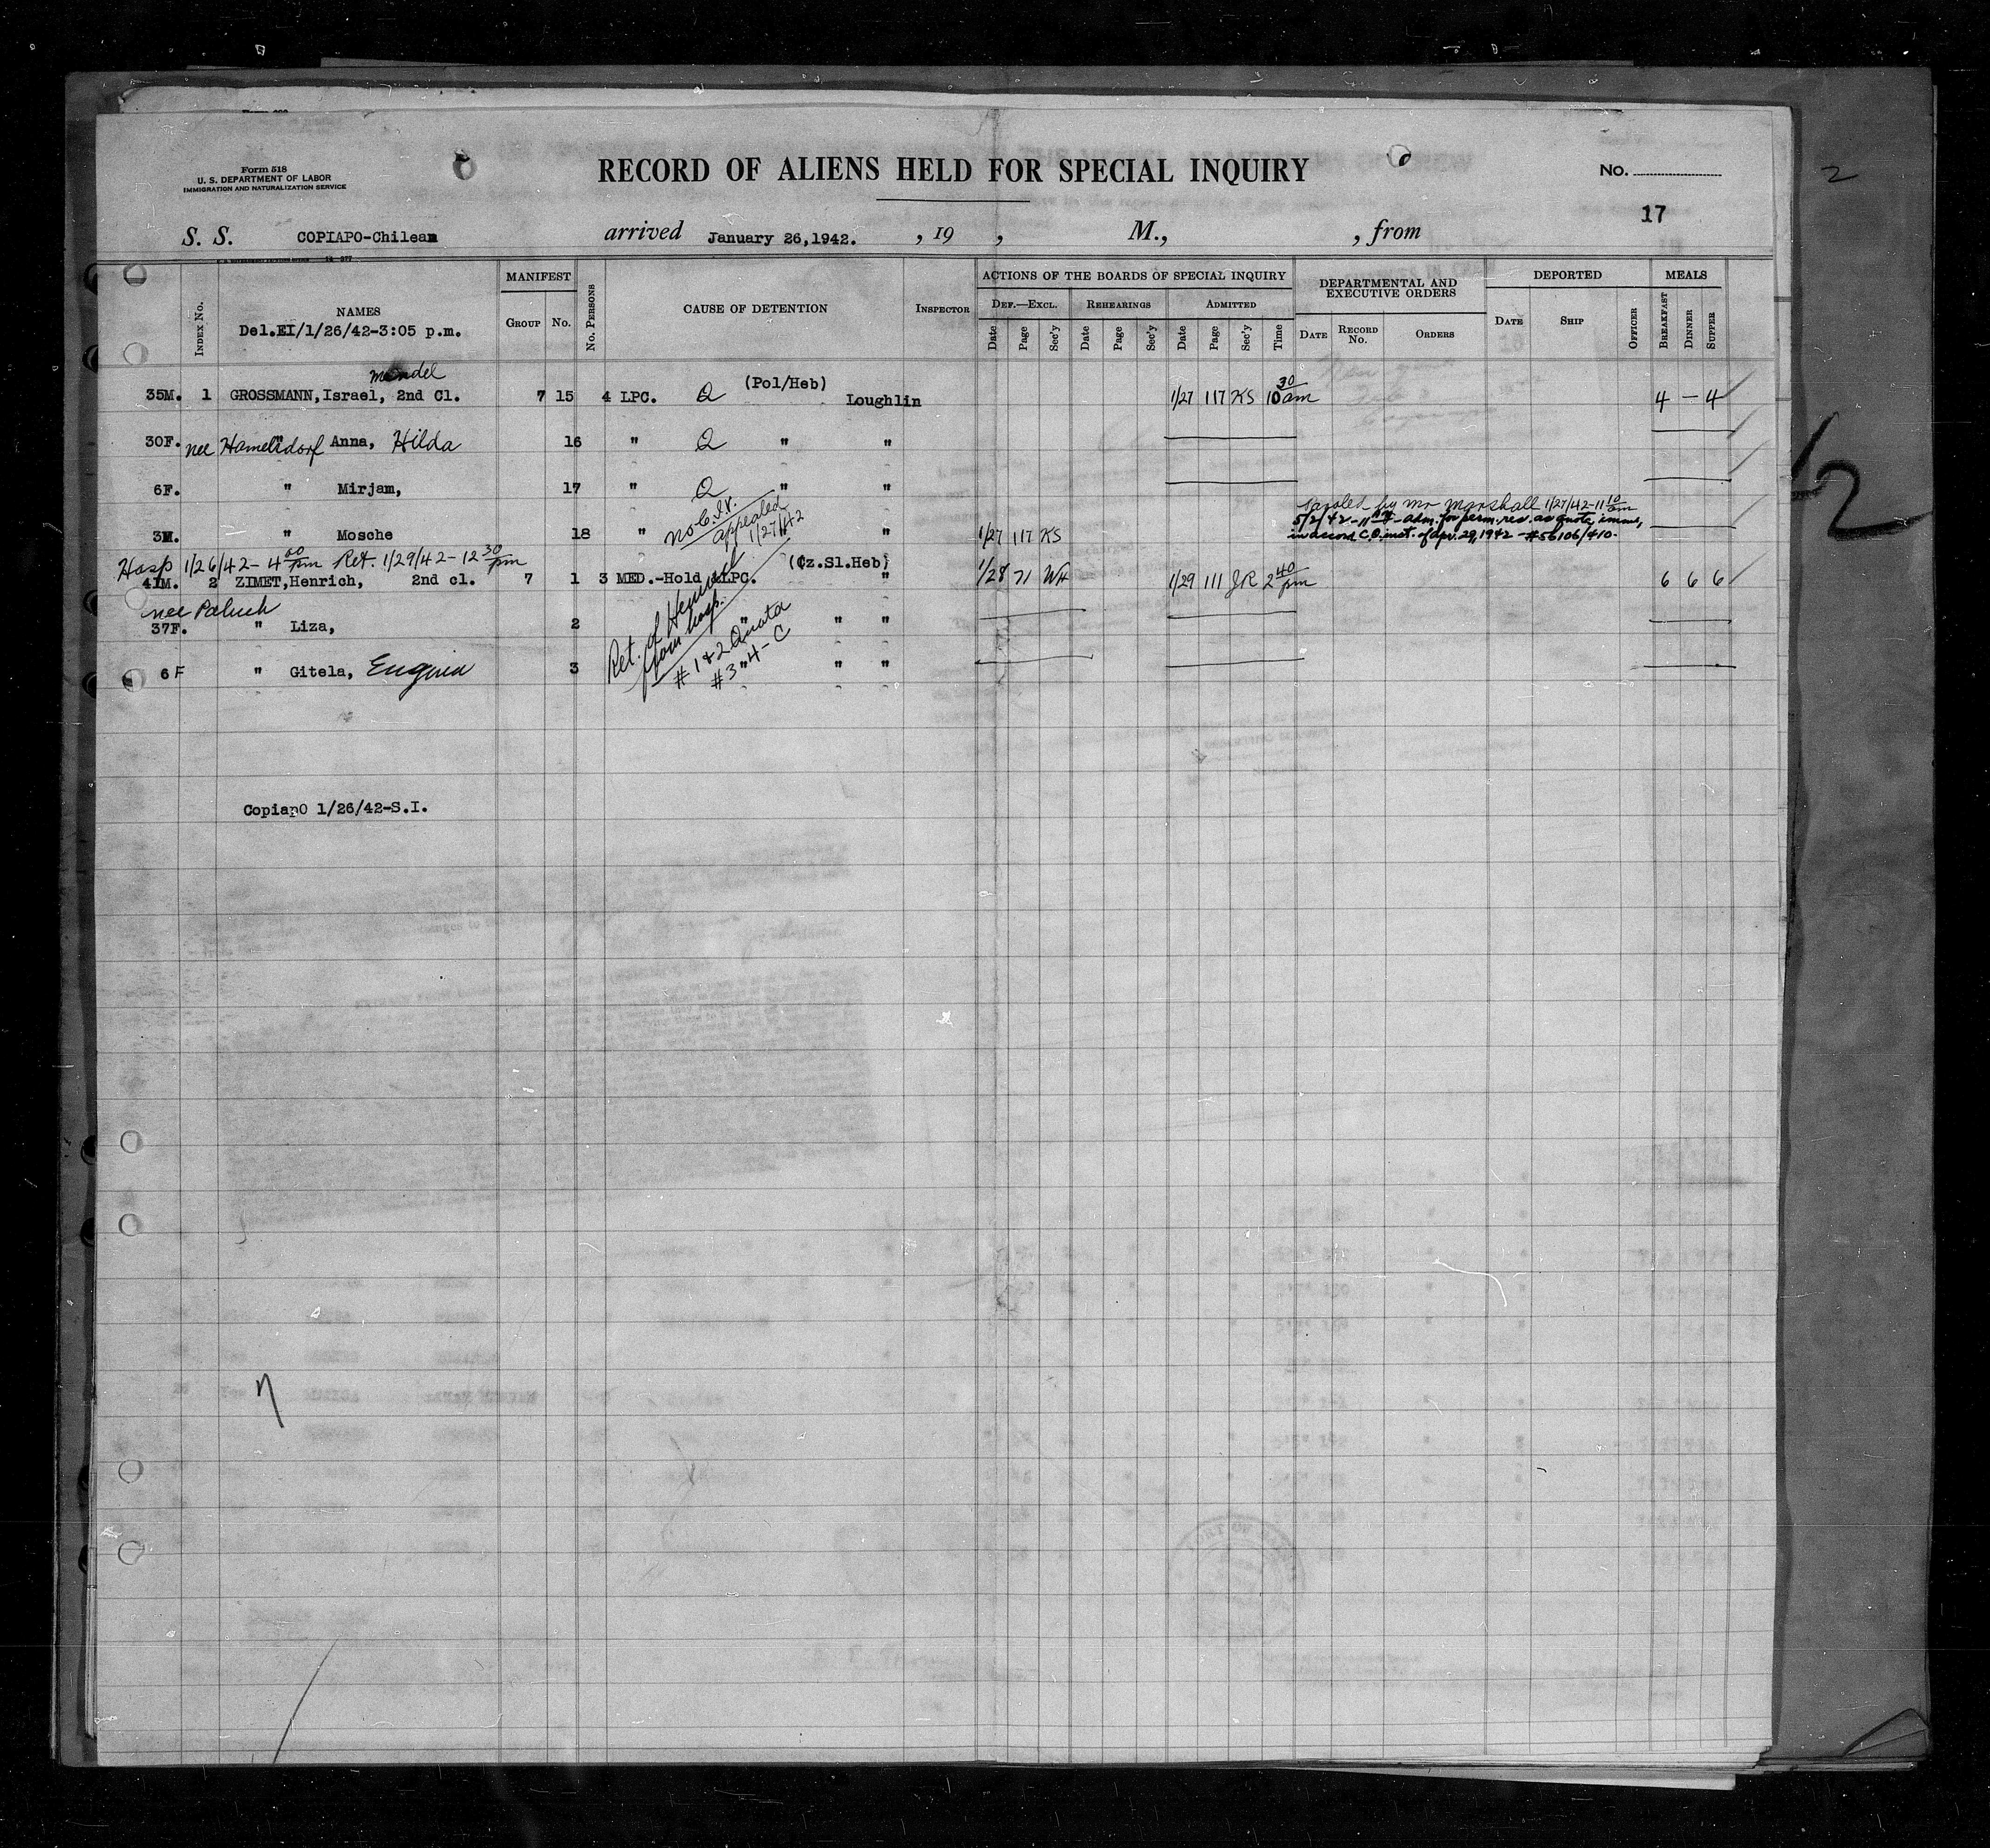 Form 518
U. S. DEPARTMENT OF LABOR
IMMIGRATION AND NATURALIZATION SERVICE
RECORD OF ALIENS HELD FOR SPECIAL INQUIRY
No.
2
17
S. S. COPIAPO-Chilean arrived January 26,1942. , 19 , M., , from
INDEX No. NAMES MANIFEST No. PERSONS CAUSE OF DETENTION INSPECTOR ACTIONS OF THE BOARDS OF SPECIAL INQUIRY DEPARTMENTAL AND EXECUTIVE ORDERS DEPORTED MEALS
Del.EI/1/26/42-3:05 p.m. GROUP No. DEF.—EXCL. REHEARINGS ADMITTED
Date Page Sec'y Date Page Sec'y Date Page Sec'y Time DATE RECORD No. ORDERS DATE SHIP OFFICER BREAKFAST DINNER SUPPER
Mendel
35M. 1 GROSSMANN,Israel, 2nd Cl. 7 15 4 LPC. Q (Pol/Heb) Loughlin 1/27 117 KS 10 30 am 4 — 4
30F. nee Hamelsdorf " Anna, Hilda 16 " Q " "
6F. " Mirjam, 17 " Q " "
3M. " Mosche 18 " no C.I.V. appealed 1/27/42 " 1/27 117 KS
Paroled by Mr Marshall 1/27/42-11 10 am
5/2/42-11 - adm. for perm. res. as quota immi,
in accord C.O. inst. of Apr. 29, 1942 - #56106/410-
Hosp 1/26/42- 4 00 pm Ret. 1/29/42-12 30 pm
41M. 2 ZIMET,Henrich, 2nd cl. 7 1 3 MED.-Hold &LPC. (Cz.Sl.Heb) " 1/28 71 WH 1/29 111 JR 2 40 pm 6 6 6
nee Paluch
37F. " Liza, 2 " " "
6F " Gitela, Euginia 3 " " "
Ret. of Henrich
from hosp.
#1&2 Quota
#3 " 4-C
12
Copiapo 1/26/42-S.I.